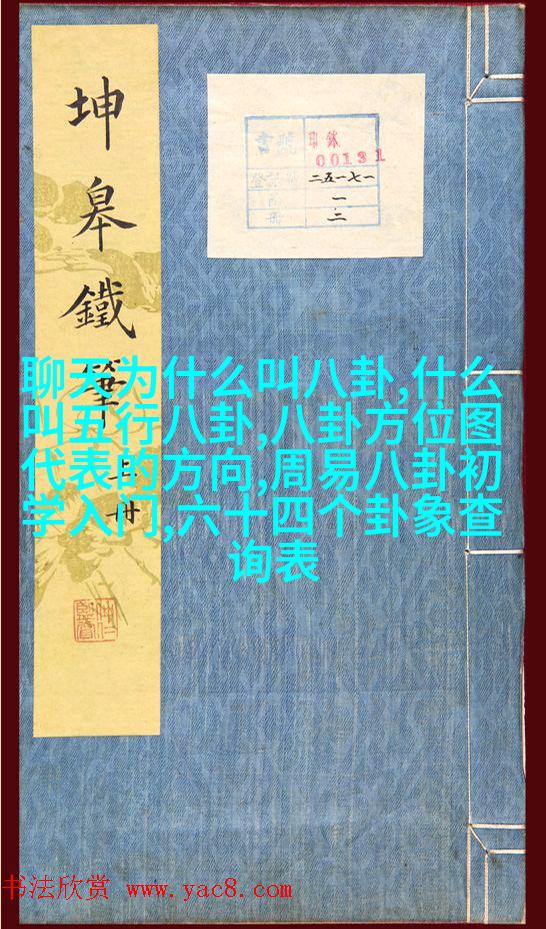 坤皋鐵筆
上冊
書號
00131
二五一七一
一
二
聊天为什么叫八卦,什么
叫五行八卦,八卦方位图
代表的方向,周易八卦初
学入门,六十四个卦象查
询表
书法欣赏 www.yac8.com